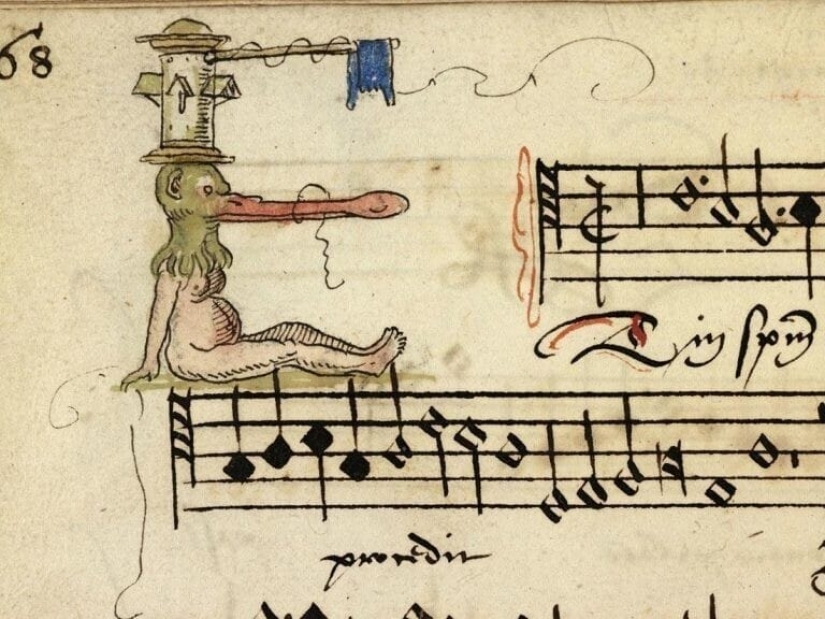 68
Et in spm̄
procedit